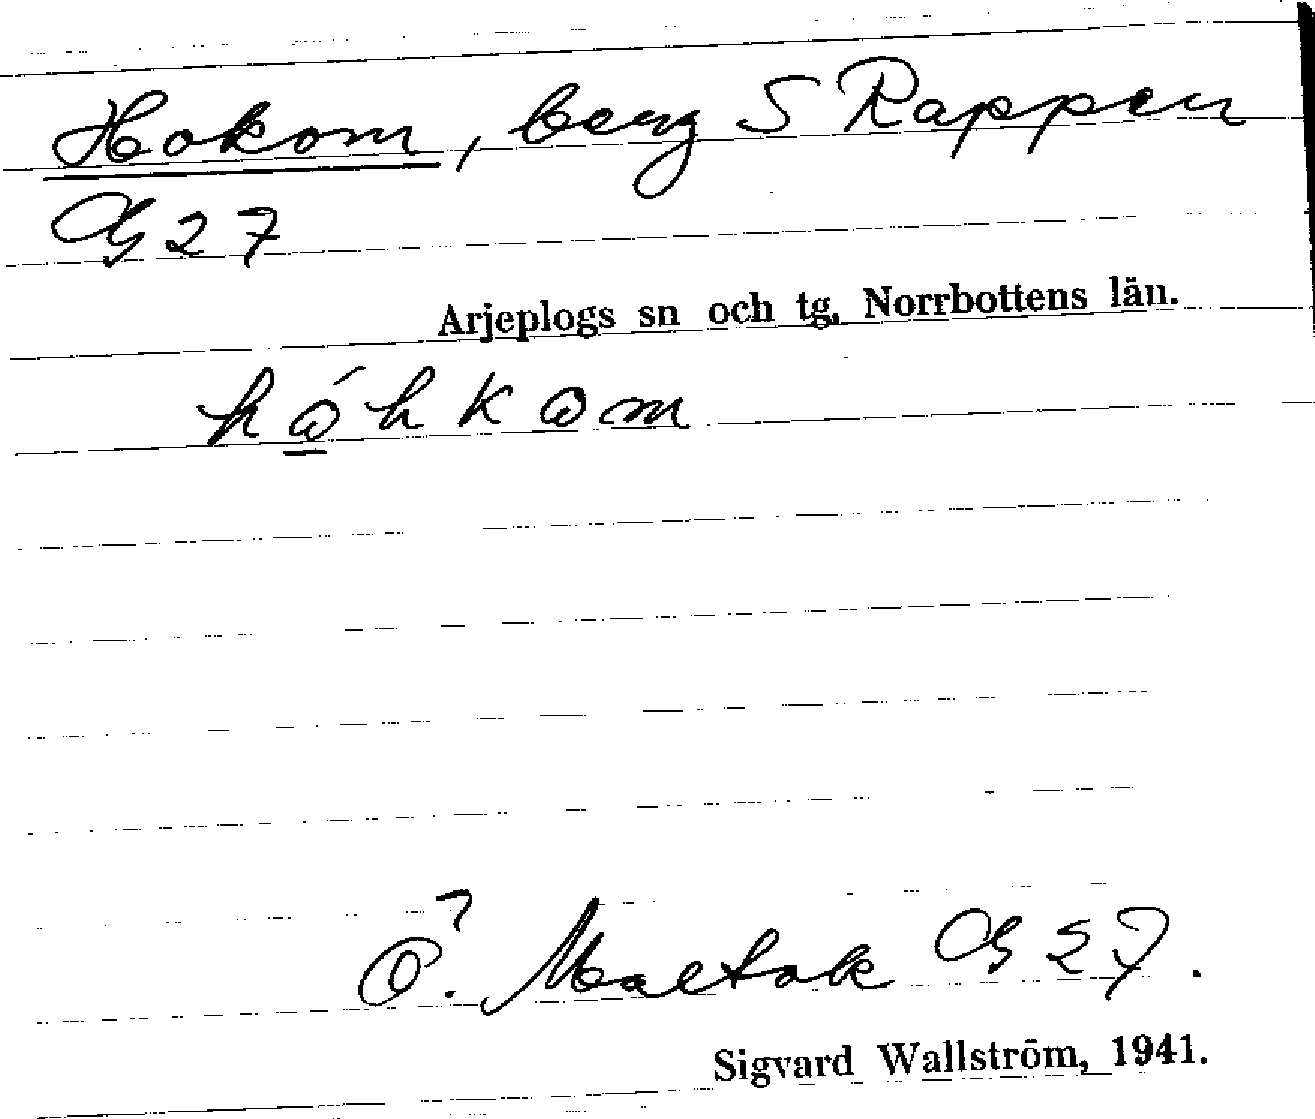 Hokom, berg S Rappen
G 27
Arjeplogs sn och tg, Norrbottens län.
hǫ́hkom
Ö. Maetok G 27.
Sigvard Wallström, 1941.